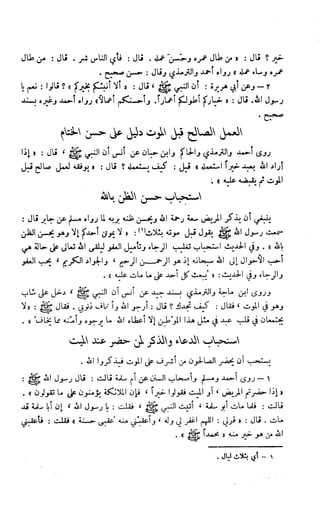 خير ؟ قال : « من طال عمره وحسن عمله . قال : فأي الناس شر . قال : من طال
عمره وساء عمله » رواه أحمد والترمذي وقال : حسن صحيح .
٢ - وعن أبي هريرة : أن النبي ﷺ قال : « ألا أنبئكم بخيركم » ؟ قالوا : نعم يا
رسول الله . قال : « خياركم أطولكم أعماراً . وأحسنكم أعمالاً » رواه أحمد وغيره بسند
صحيح .
العمل الصالح قبل الموت دليل على حسن الختام
روى أحمد والترمذي والحاكم وابن حبان عن أنس أن النبي ﷺ ، قال : « إذا
أراد الله بعبد خيراً استعمله » قيل : كيف يستعمله ؟ قال : « يوفقه لعمل صالح قبل
الموت ثم يقبضه عليه » .
استحباب حسن الظن بالله
ينبغي أن يذكر المريض سعة رحمة الله ويحسن ظنه بربه لما رواه مسلم عن جابر قال :
سمعت رسول الله ﷺ يقول قبل موته بثلاث(١) : « لا يموتن أحدكم إلا وهو يحسن الظن
بالله » . وفي الحديث استحباب تغليب الرجاء وتأميل العفو ليلقى الله تعالى على حالة هي
أحب الأحوال إلى الله سبحانه إذ هو الرحمن الرحيم ، والجواد الكريم ، يحب العفو
والرجاء وفي الحديث : « يبعث كل أحد على ما مات عليه » .
وروى ابن ماجة والترمذي بسند جيد عن أنس أن النبي ﷺ ، دخل على شاب
وهو في الموت ، فقال : كيف تجدك ؟ قال : أرجو الله وأخاف ذنوبي . فقال ﷺ : « لا
يجتمعان في قلب عبد في مثل هذا الموطن إلا أعطاه الله ما يرجوه وأمنه مما يخاف » .
استحباب الدعاء والذكر لمن حضر عند الميت
يستحب أن يحضر الصالحون من أشرف على الموت فيذكروا الله .
١ - روى أحمد ومسلم وأصحاب السنن عن أم سلمة قالت : قال رسول الله ﷺ :
« إذا حضرتم المريض ، أو الميت فقولوا خيراً ، فإن الملائكة يؤمنون على ما تقولون » .
قالت : فلما مات أبو سلمة ، أتيت النبي ﷺ ، فقلت : يا رسول الله ، إن أبا سلمة قد
مات . قال : « قولي : اللهم اغفر لي وله ، وأعقبني منه عقبى حسنة » فقلت : فأعقبني
الله من هو خير منه « محمداً ﷺ » .
١ - أي بثلاث ليال .